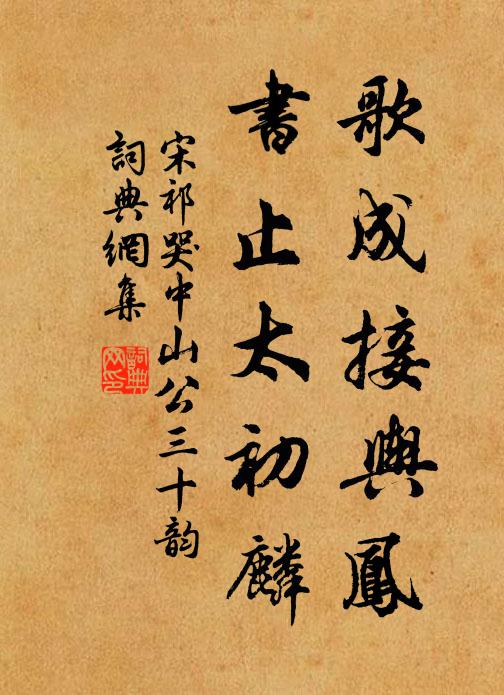 歌成接輿鳳
書止太初麟
宋祁哭中山公三十韵
詞典網集
詞典網印